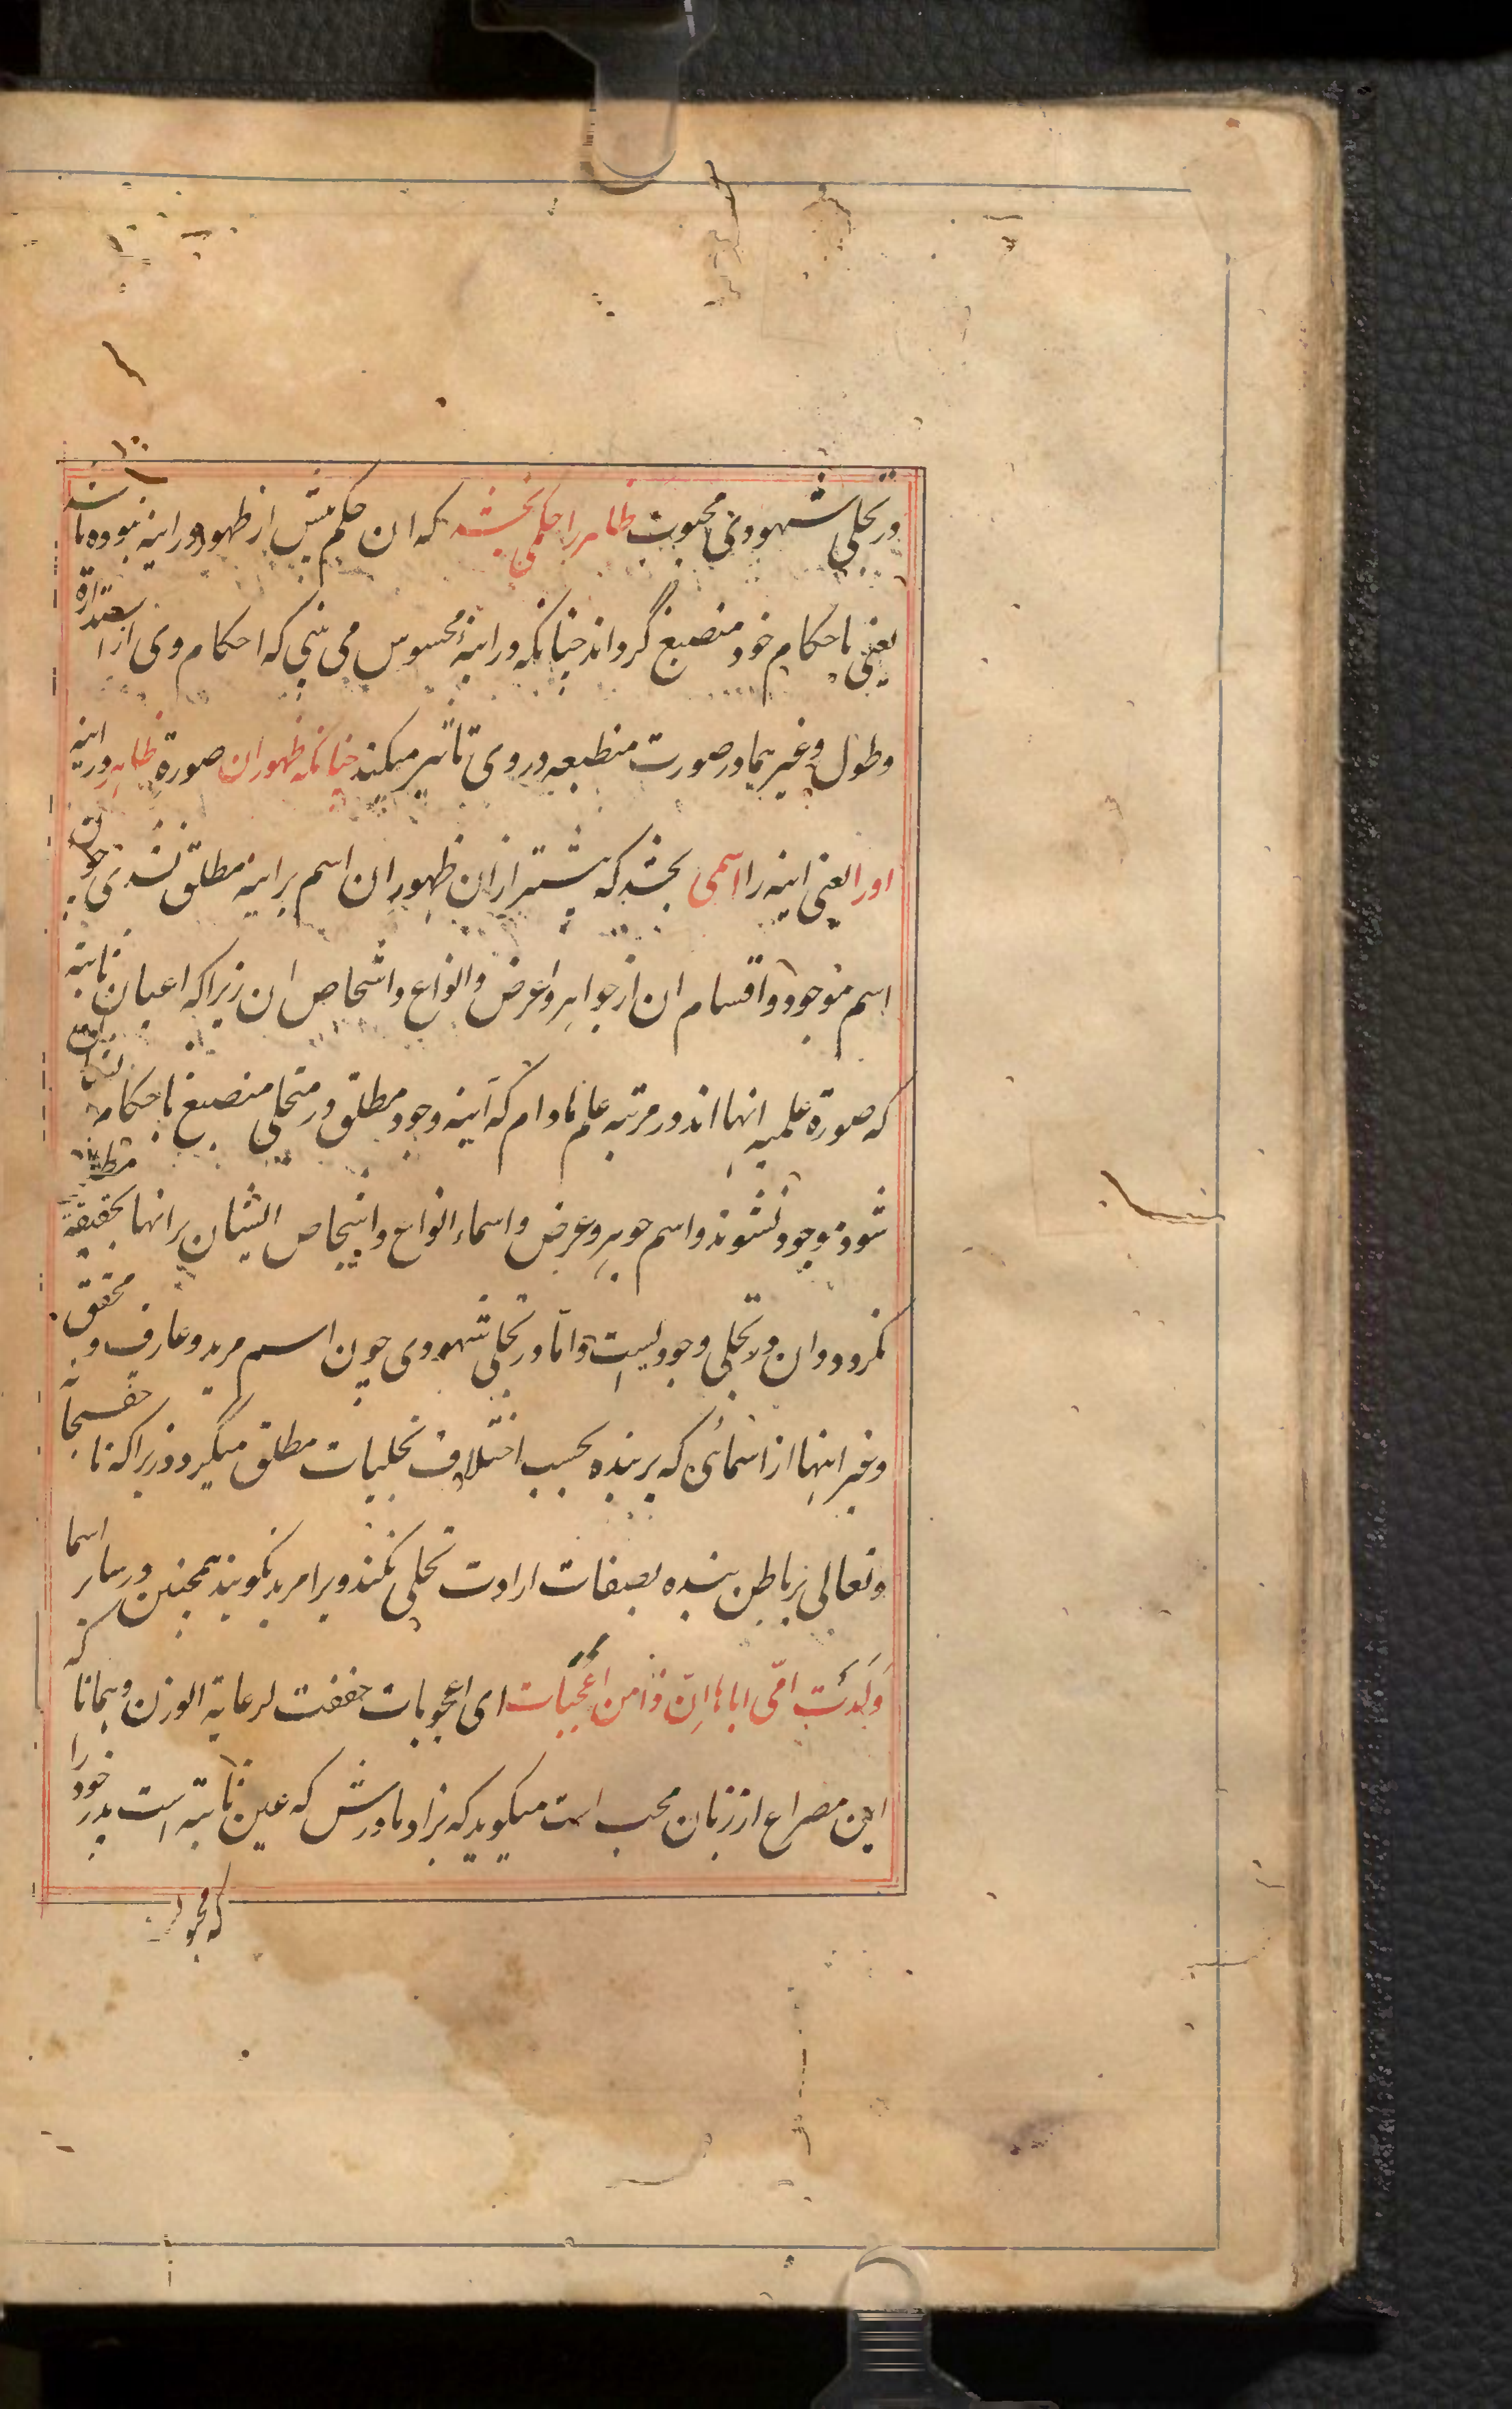 در تجلی شهودی محبوبت ظاهر را حکمی بخشد که ان حکم پیش از ظهور در اینه نبوده باشد
یعنی باحکام خود منصبغ گرداند چنانکه در اینۀ محسوس می بینی که احکام وی از استدارة
و طول و غیرهما در صورت منطبعه در وی تاثیر میکند چنانکه ظهور ان صورة ظاهر در اینه
او را یعنی اینه را اسمی بخشد که پیشتر ازان ظهور ان اسم بر اینه مطلق نشدی چون
اسم موجود و اقسام ان از جواهر و اعرض و انواع و اشخاص ان زیرا که اعیان ثابته
که صورة علمیه انها اند در مرتبه علم مادام که آینه وجود مطلق در متجلی منصبغ باحکام ایشان
شود موجود نشوند و اسم جوهر و عرض و اسماء انواع و اشخاص ایشان بر انها بحقیقة مطلق
نکردد و ان در تجلی وجودیست و اما در تجلی شهودی چون اسم مرید و عارف و محقق
و غیر اینها از اسمائی که بر بنده بحسب اختلاف تجلیات مطلق میگردد زیرا که تا حق سبحانه
و تعالی بر باطن بنده بصفات ارادت تجلی نکند ویرا مرید نکویند همچنین در سایر اسما
وَلَدَتْ امّی اباها اِنّ ذا من اَعْجَبات ای اعجوبات خففت لرعایة الوزن و همانا که
این مصراع از زبان محب است میکوید که بزاد مادرش که عین ثابته است پدر خود را
که